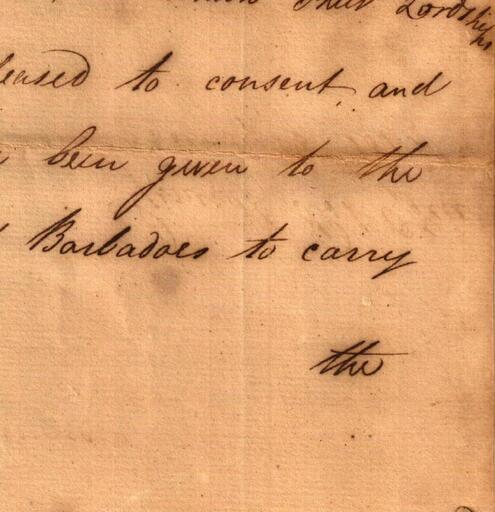 their Lordships
leased to consent and
been given to the
Barbadoes to carry
the